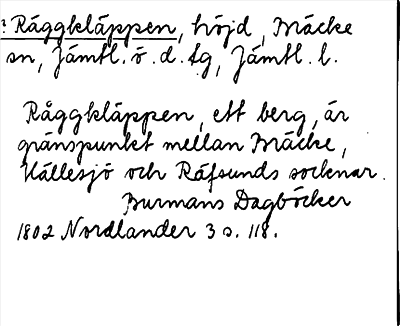 ? Råggkläppen, höjd, Bräcke
sn, Jämtl. ö. d. tg, Jämtl. l.
Råggkläppen, ett berg, är
gränspunkt mellan Bräcke,
Hällesjö och Räfsunds socknar.
Burmans Dagböcker
1802 Nordlander 3 s. 118.